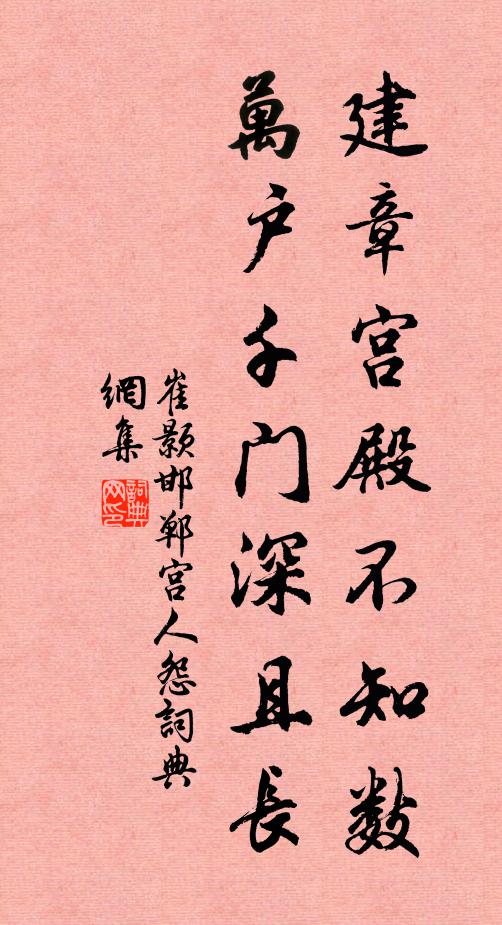 建章宫殿不知数
萬户千门深且長
崔颢邯郸宫人怨詞典
網集
詞典网印